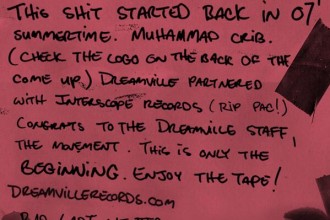 THIS SHIT STARTED BACK IN 07'
SUMMERTIME. MUHAMMAD CRIB.
(CHECK THE LOGO ON THE BACK OF THE
COME UP) DREAMVILLE PARTNERED
WITH INTERSCOPE RECORDS (RIP PAC!)
CONGRATS TO THE DREAMVILLE STAFF,
THE MOVEMENT. THIS IS ONLY THE
BEGINNING. ENJOY THE TAPE!
DREAMVILLERECORDS.COM